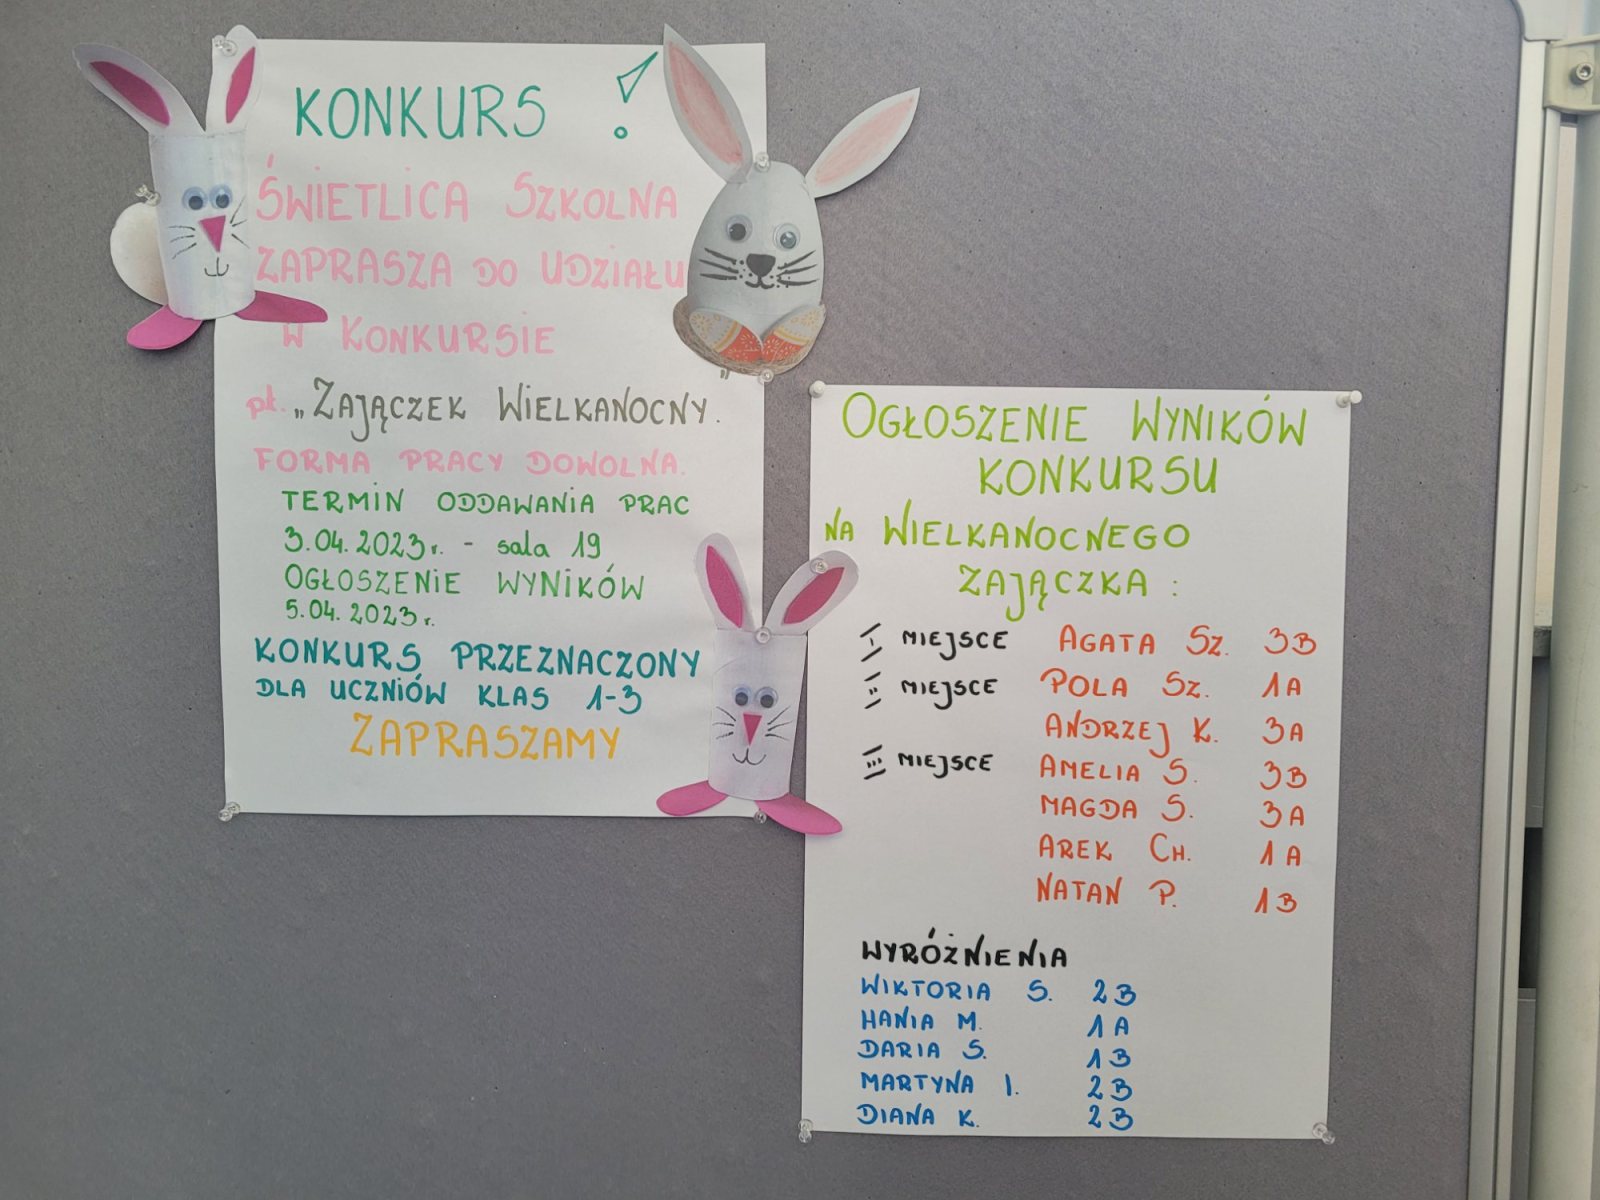 KONKURS !
ŚWIETLICA SZKOLNA
ZAPRASZA DO UDZIAŁU
W KONKURSIE
pt. „ZAJĄCZEK WIELKANOCNY."
FORMA PRACY DOWOLNA.
TERMIN ODDAWANIA PRAC
3.04.2023r. - sala 19
OGŁOSZENIE WYNIKÓW
5.04.2023r.
KONKURS PRZEZNACZONY
DLA UCZNIÓW KLAS 1-3
ZAPRASZAMY
OGŁOSZENIE WYNIKÓW
KONKURSU
NA WIELKANOCNEGO
ZAJĄCZKA :
I MIEJSCE AGATA SZ. 3B
II MIEJSCE POLA SZ. 1A
ANDRZEJ K. 3A
III MIEJSCE AMELIA S. 3B
MAGDA S. 3A
AREK CH. 1A
NATAN P. 1B
WYRÓŻNIENIA
WIKTORIA S. 2B
HANIA M. 1A
DARIA S. 1B
MARTYNA I. 2B
DIANA K. 2B